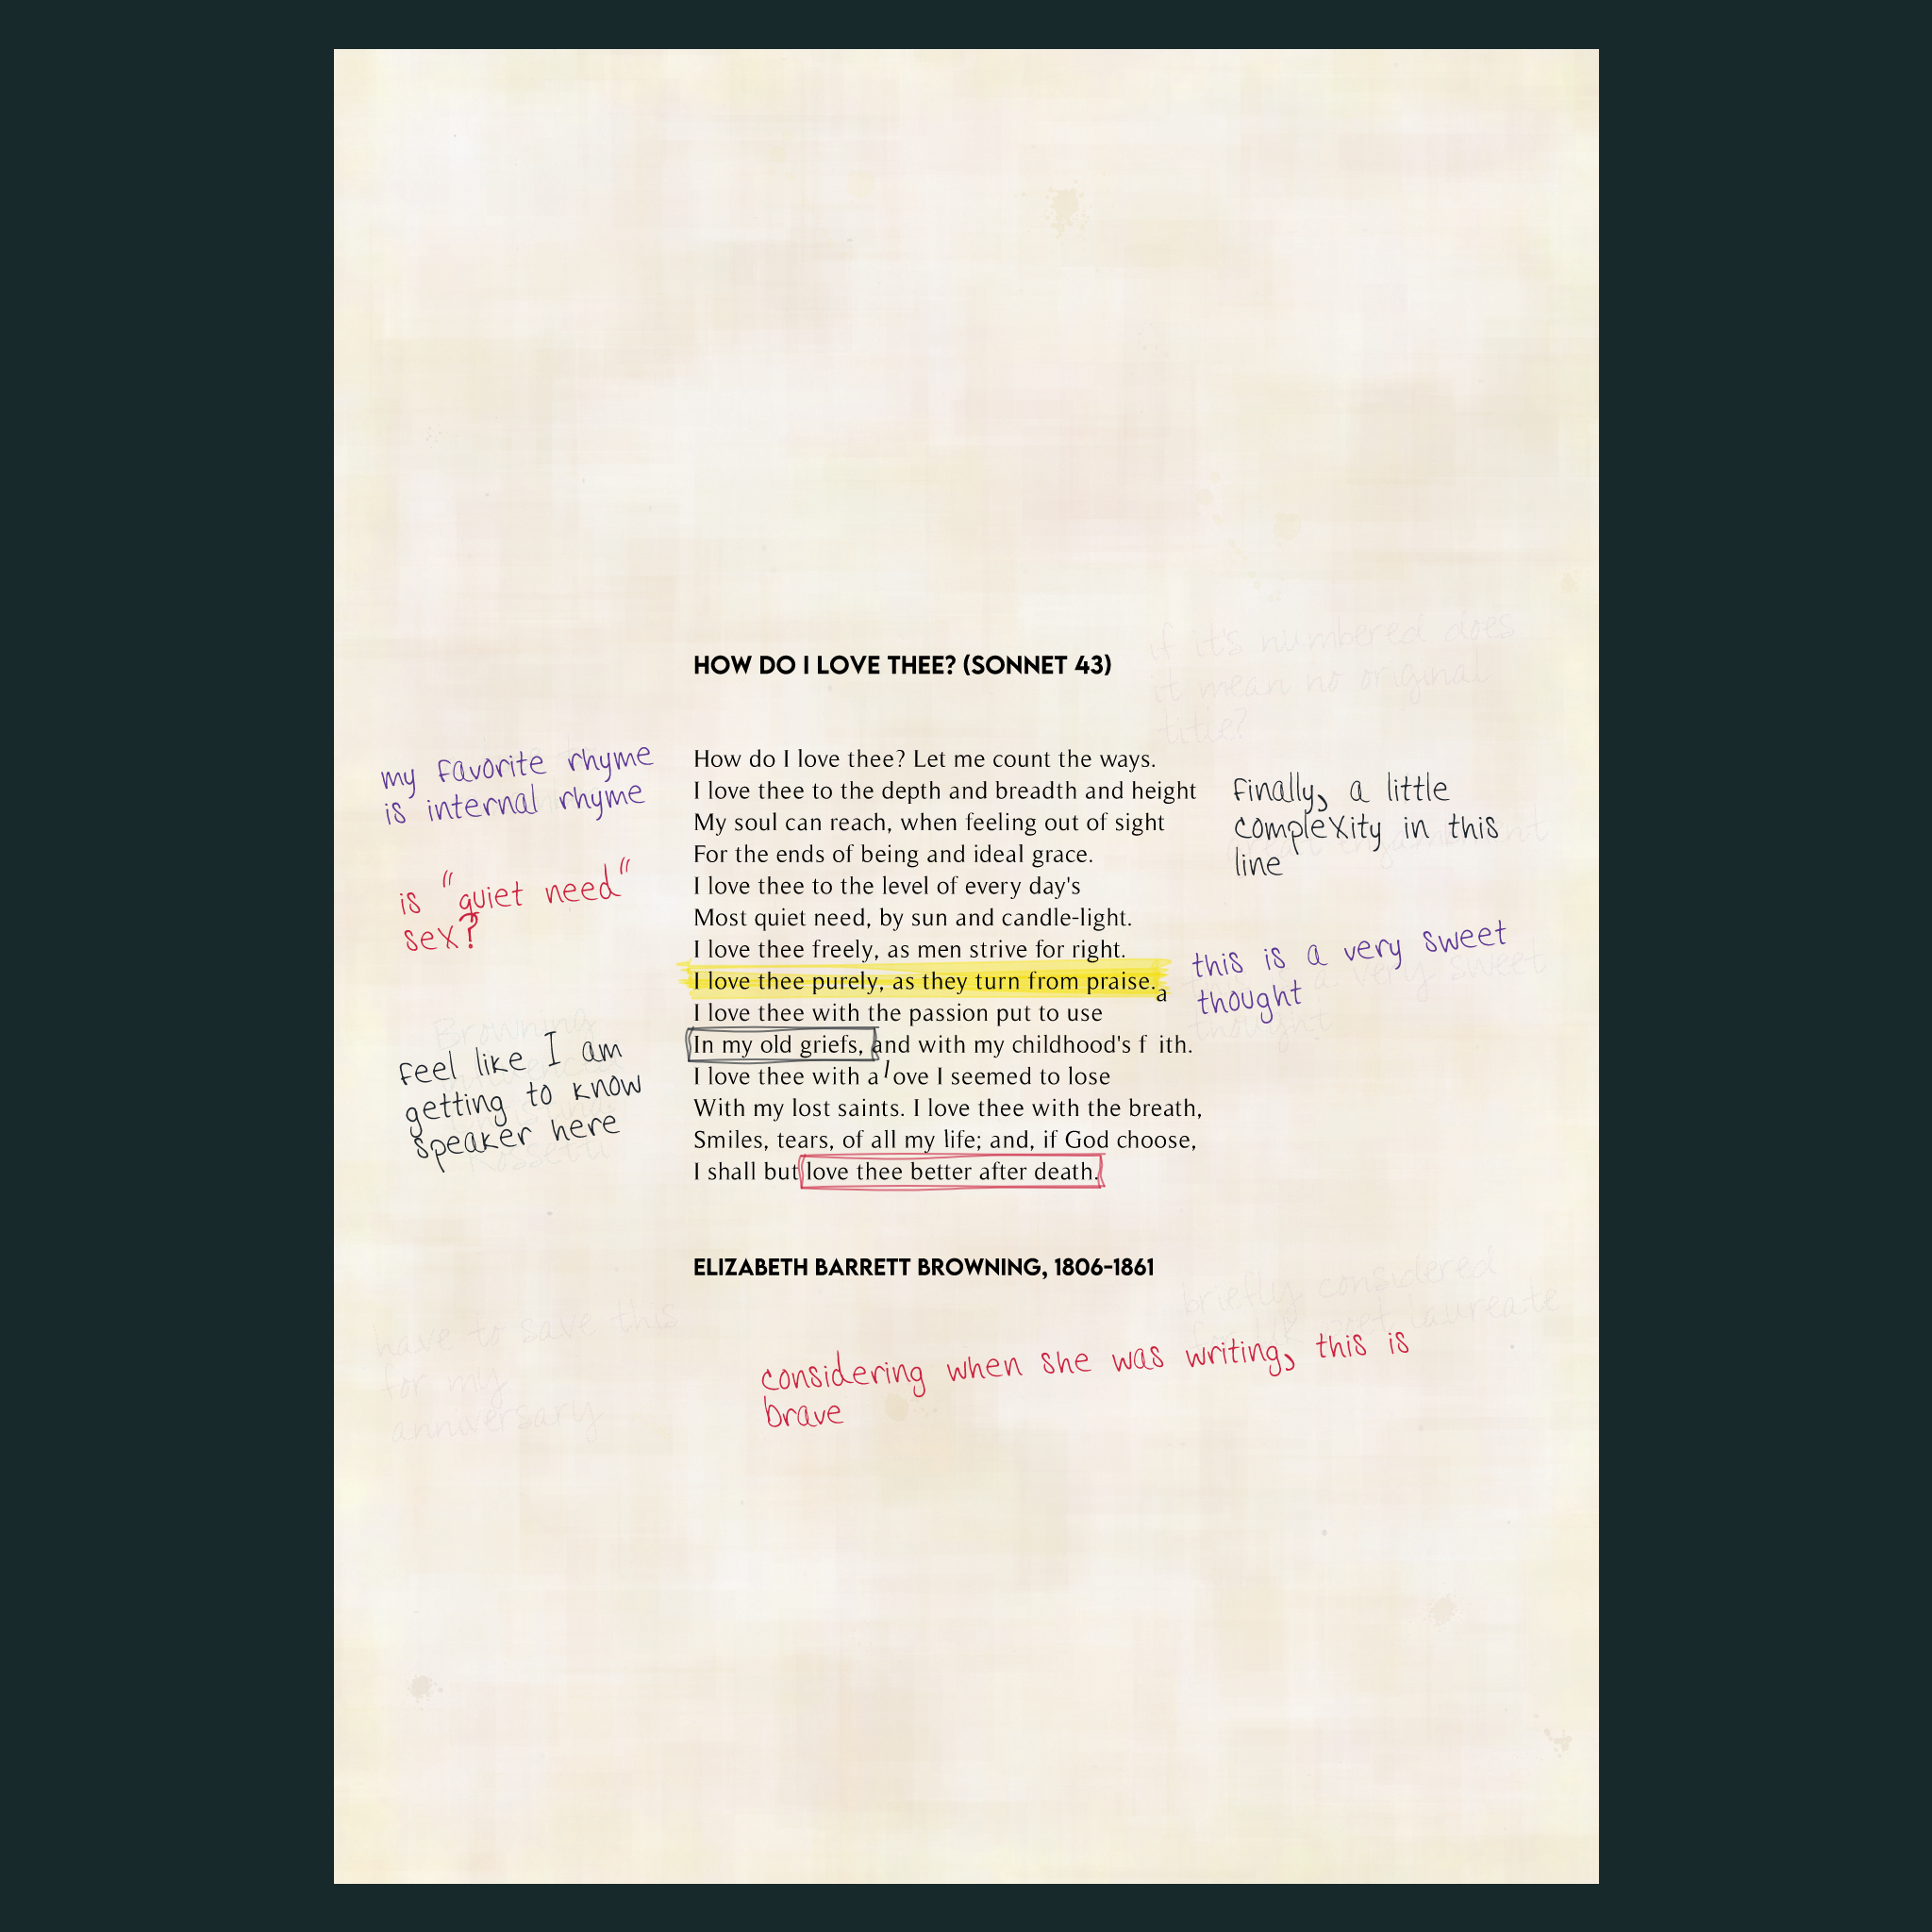 if it's numbered does
it mean no original
title?
HOW DO I LOVE THEE? (SONNET 43)
my favorite rhyme
is internal rhyme
is "quiet need"
sex?
Browning
feel like I am
getting to know
speaker here
Rossetti
How do I love thee? Let me count the ways.
I love thee to the depth and breadth and height
My soul can reach, when feeling out of sight
For the ends of being and ideal grace.
I love thee to the level of every day's
Most quiet need, by sun and candle-light.
I love thee freely, as men strive for right.
I love thee purely, as they turn from praise.
a
I love thee with the passion put to use
In my old griefs, and with my childhood's f ith.
I love thee with a love I seemed to lose
With my lost saints. I love thee with the breath,
Smiles, tears, of all my life; and, if God choose,
I shall but love thee better after death.
finally, a little
complexity in this
line
enjambment
this is a very sweet
thought
a very sweet
thought
ELIZABETH BARRETT BROWNING, 1806-1861
briefly considered
poet laureate
have to save this
for my
anniversary
considering when she was writing, this is
brave